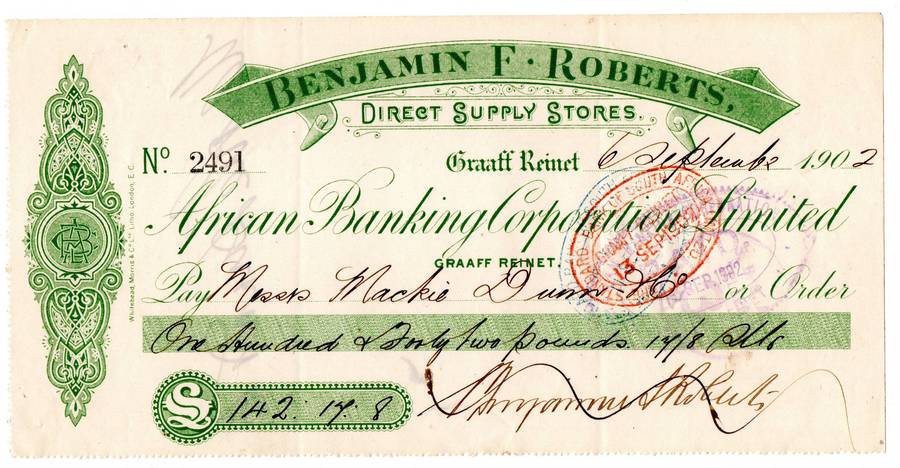 BENJAMIN F. ROBERTS,
DIRECT SUPPLY STORES.
No. 2491 Graaff Reinet 6 September 1902
African Banking Corporation Limited
GRAAFF REINET.
Pay Messrs Mackie Dunn & Co or Order
One Hundred & Forty two pounds 17/8 Stg
£ 142: 17. 8
Benjamin F Roberts
Whitehead, Morris & Co. Ld. Litho. London, E.C.
STANDARD BANK OF SOUTH AFRICA
13 SEP 1902